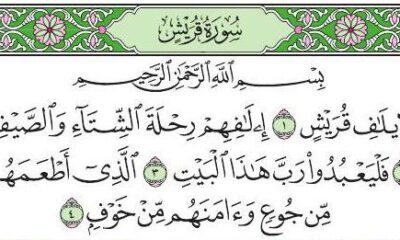 سُورَةُ قُرَيْشٍ
بِسْمِ ٱللَّهِ ٱلرَّحْمَٰنِ ٱلرَّحِيمِ
يلَٰفِ قُرَيْشٍ ١ إِۦلَٰفِهِمْ رِحْلَةَ ٱلشِّتَآءِ وَٱلصَّيْفِ
فَلْيَعْبُدُوا۟ رَبَّ هَٰذَا ٱلْبَيْتِ ٣ ٱلَّذِىٓ أَطْعَمَهُ
مِّن جُوعٍ وَءَامَنَهُم مِّنْ خَوْفٍۭ ٤